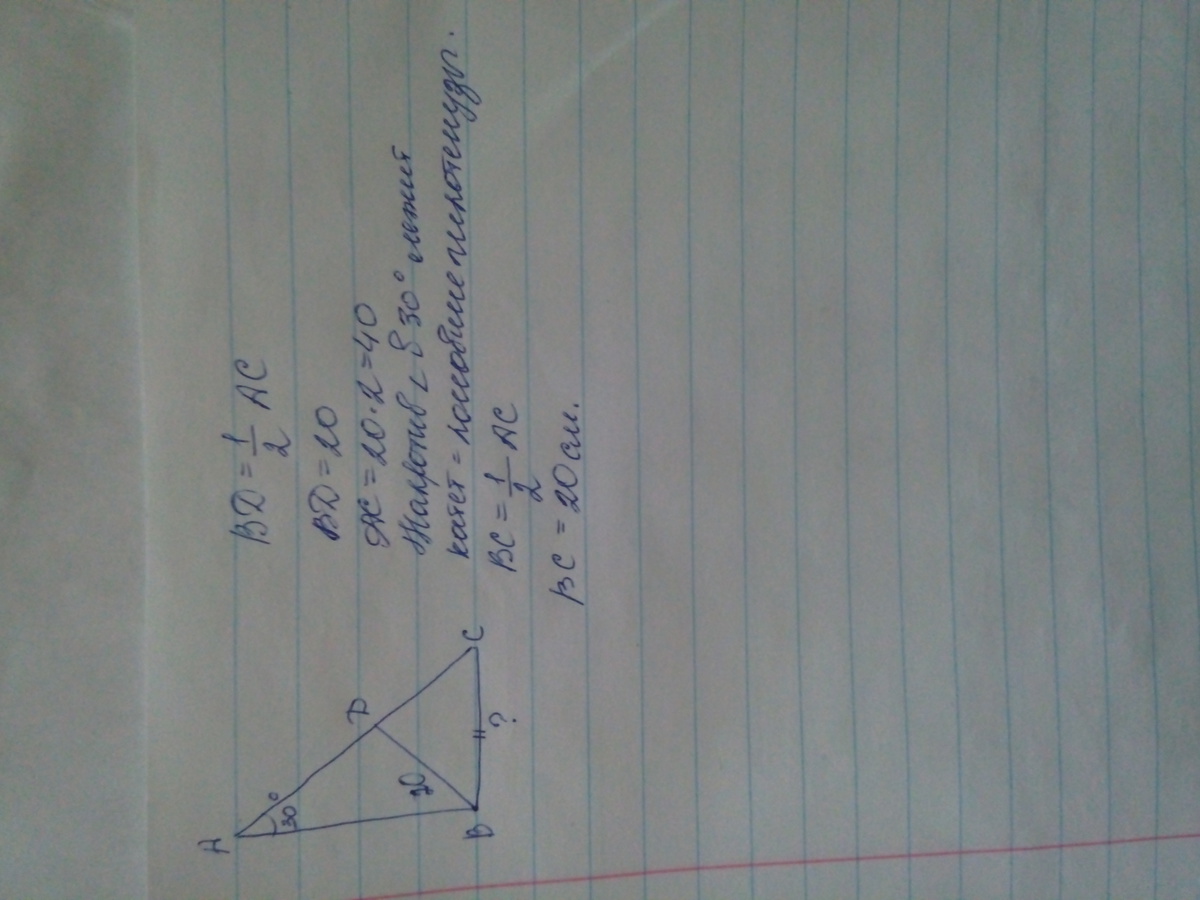 A
30°
D
20
B
?
C
BD = 1/2 AC
BD = 20
AC = 20·2 = 40
Напротив ∠ В 30° лежит
катет = половине гипотенузы.
BC = 1/2 AC
BC = 20 см.